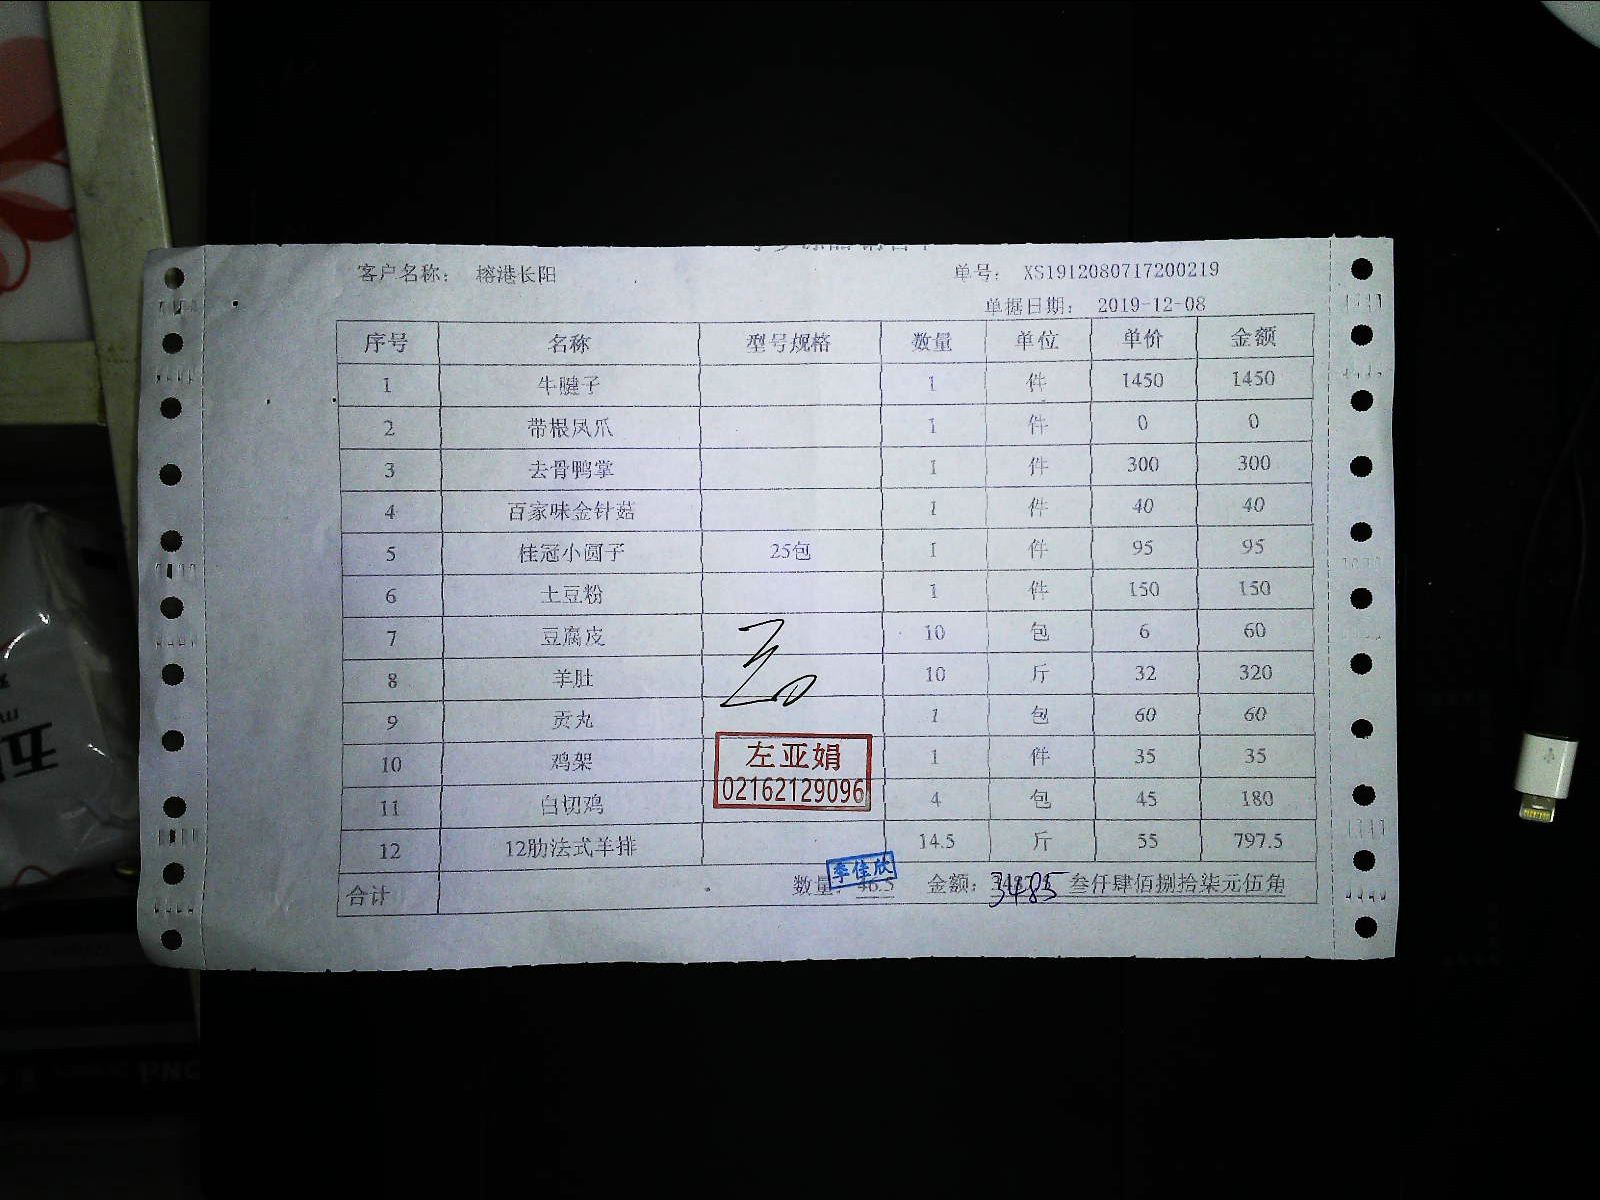 客户名称： 榕港长阳 单号： XS1912080717200219
单据日期： 2019-12-08
序号 名称 型号规格 数量 单位 单价 金额
1 牛腱子 1 件 1450 1450
2 带根凤爪 1 件 0 0
3 去骨鸭掌 1 件 300 300
4 百家味金针菇 1 件 40 40
5 桂冠小圆子 25包 1 件 95 95
6 土豆粉 1 件 150 150
7 豆腐皮 10 包 6 60
8 羊肚 10 斤 32 320
9 贡丸 1 包 60 60
10 鸡架 1 件 35 35
11 白切鸡 4 包 45 180
12 12肋法式羊排 14.5 斤 55 797.5
左亚娟
02162129096
李佳欣
合计 数量： 46.5 金额： 3485 叁仟肆佰捌拾柒元伍角